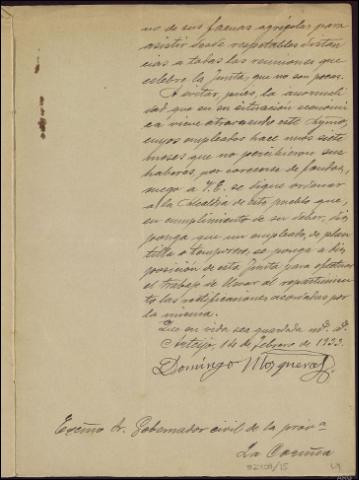 no de sus faenas agrícolas para
asistir desde respetables distan-
cias a todas las reuniones que
celebre la Junta, que no son pocas.
A evitar, pues, la anormali-
dad que en su situación económi-
ca viene atravesando este Aymo,
cuyos empleados hace más siete
meses que no percibieron sus
haberes, por carencia de fondos,
ruego a V.E. se digne ordenar
a la Alcaldía de este pueblo que,
en cumplimiento de su deber, dis-
ponga que un empleado, de plan-
tilla o temporero, se ponga a dis-
posición de esta Junta para efectuar
el trabajo de llevar al repartimien-
to las rectificaciones acordadas por
la misma.
Cuya vida sea guardada
Arteijo, 14 de febrero de 1933.
Domingo Mosquera
Excmo Sr. Gobernador civil de la prova
La Coruña